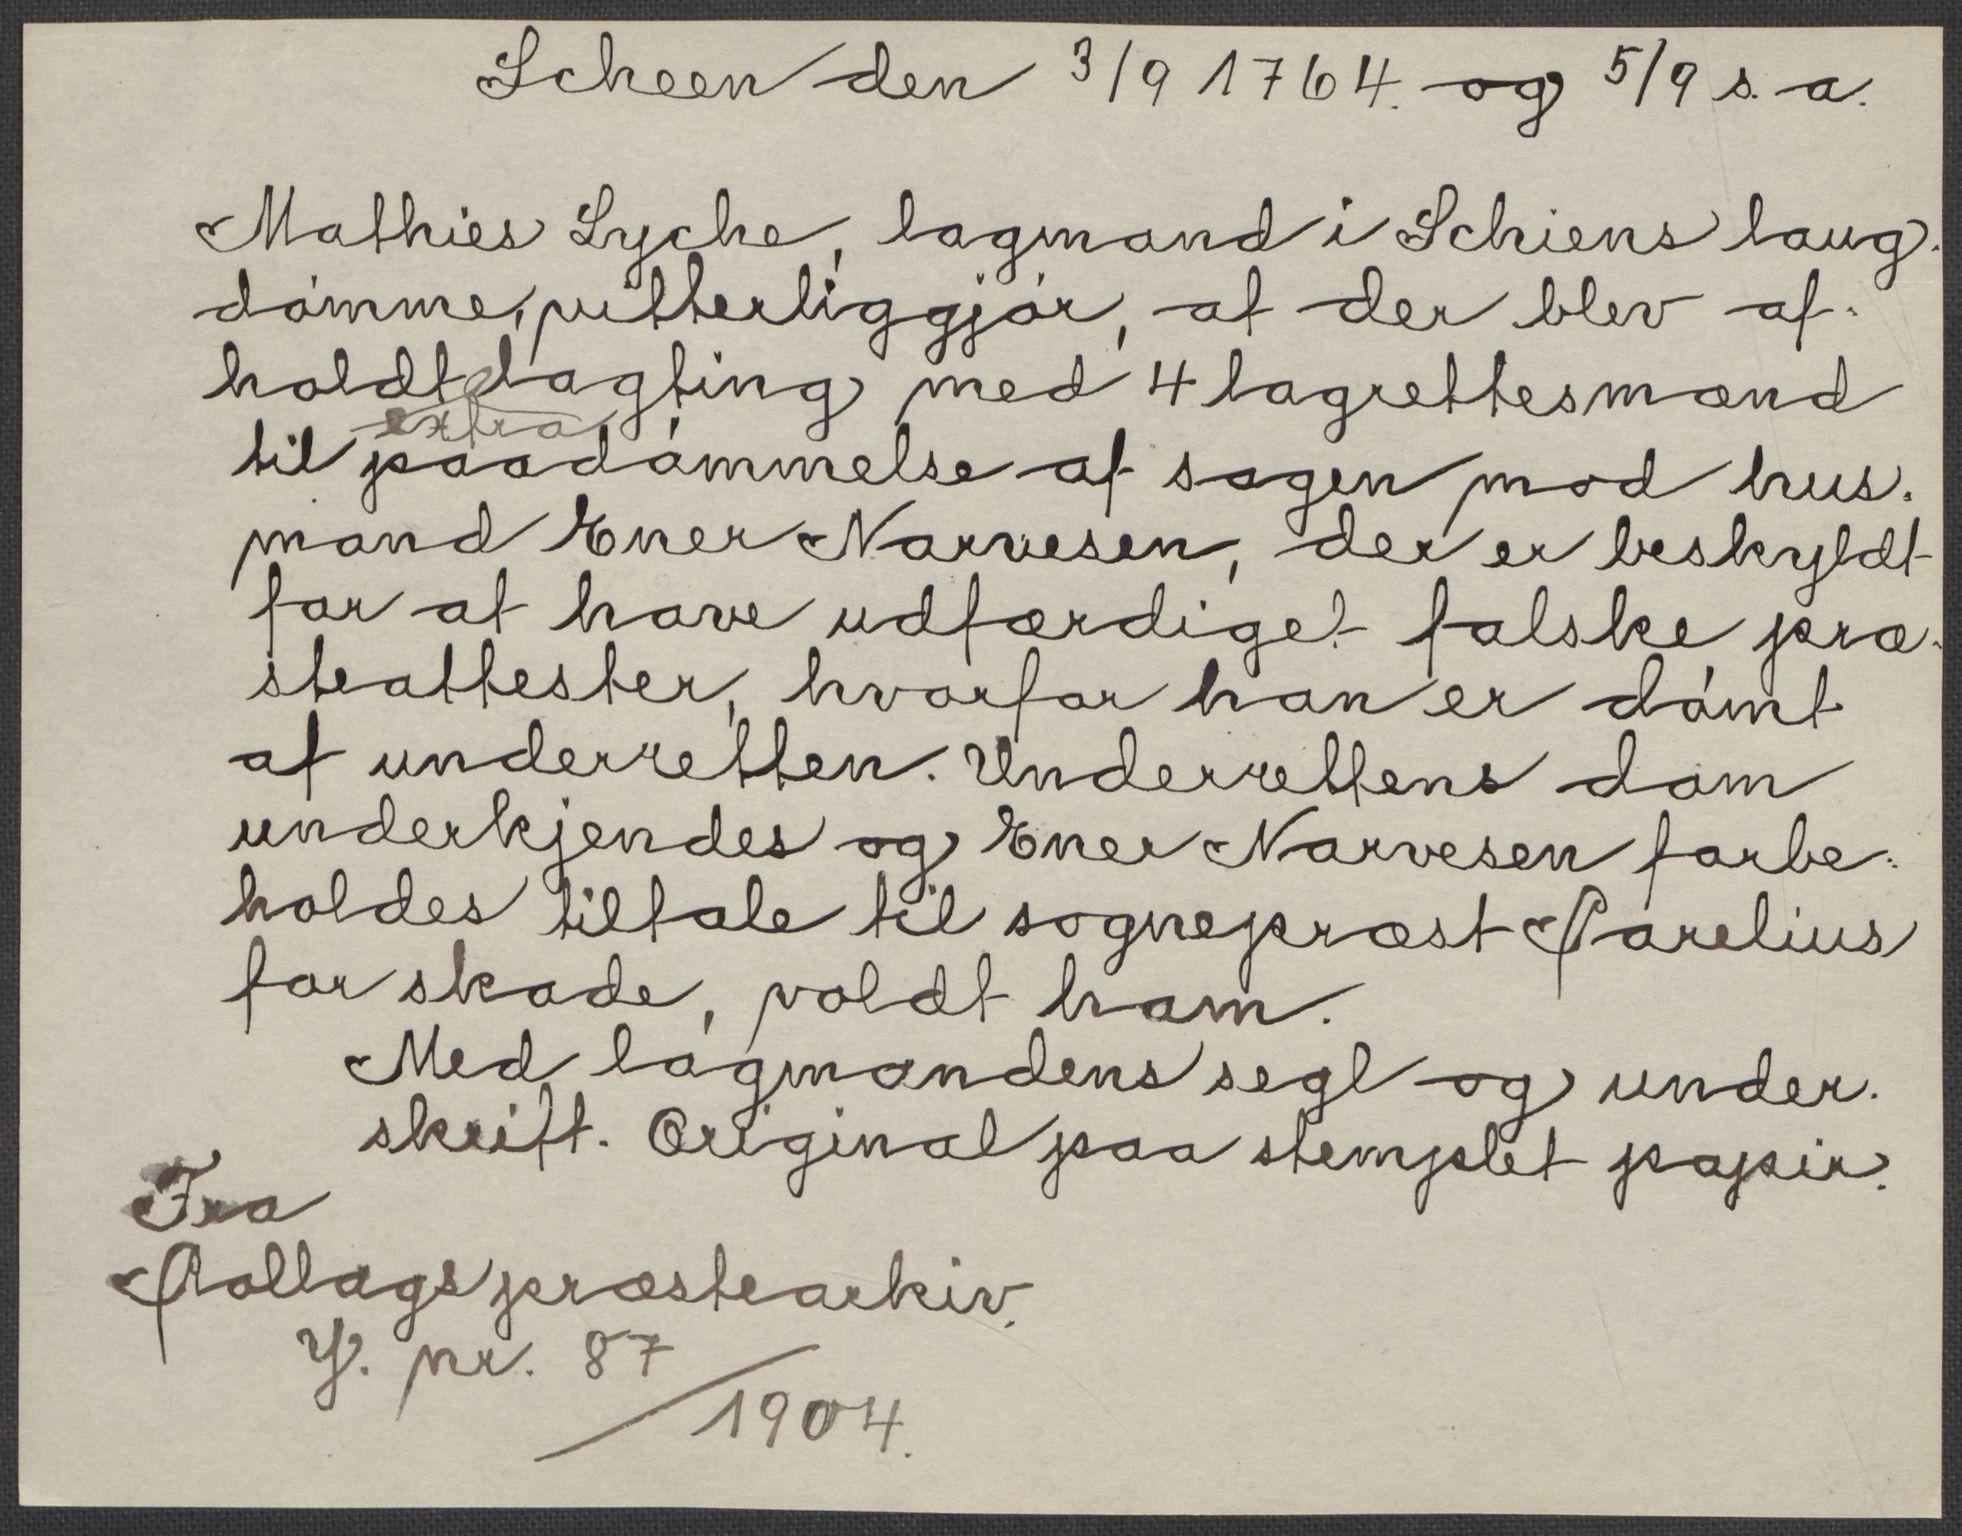 Scheen den 3/9 1764. og 5/9 s. a.
Mathies Lyche, lagmand i Schiens laug-
dømme, vitterliggjør, at der blev af-
holdt lagting med 4 lagrettesmænd
extra
til paadømmelse af sagen mod hus-
mand Ener Narvesen, der er beskyldt
for at have udfærdiget falske præ-
steattester, hvorfor han er dømt
af underretten. Underrettens dom
underkjendes og Ener Narvesen forbe-
holdes tiltale til sognepræst Parelius
for skade, voldt ham.
Med lagmandens segl og under-
skrift. Original paa stemplet papir.
Fra
Rollags præstearkiv.
J. nr. 87/1904.